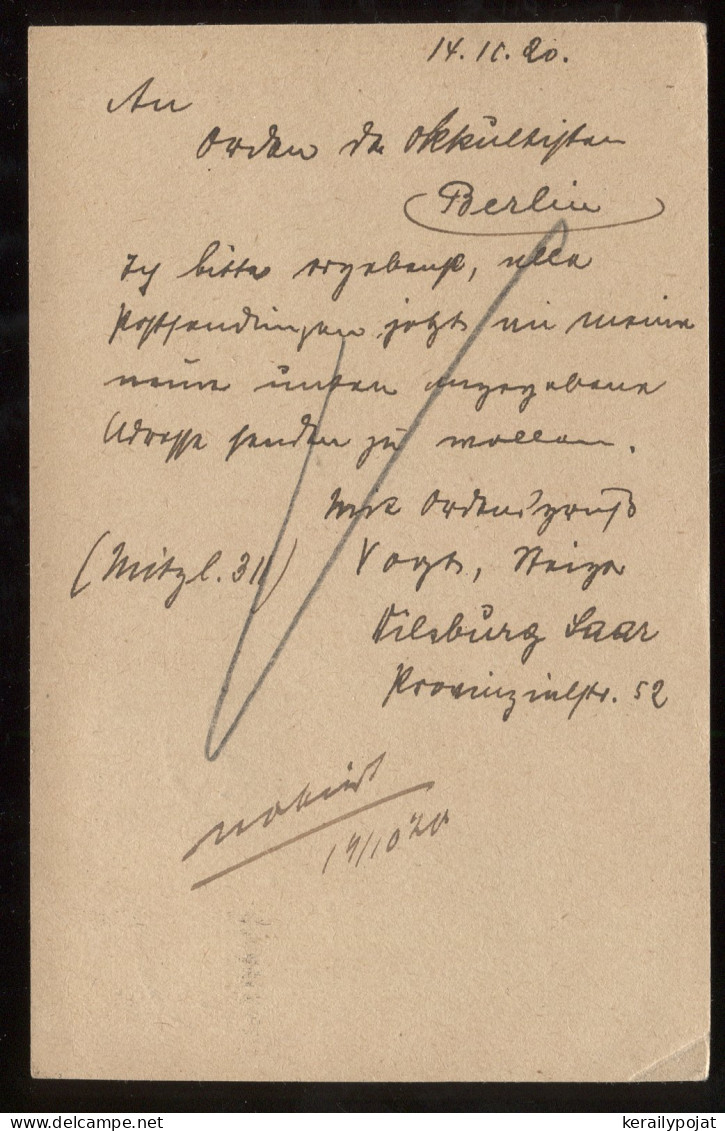 14. 10. 20.
An
Orden der Okkultisten
Berlin
Ich bitte ergebenst, alle
Postsendungen jetzt an meine
neue unten angegebene
Adresse senden zu wollen.
Mit Ordensgruß
(Mitgl. 311) Vogt,
Saar
Provinzialstr. 52
notiert
19/10 20
kerailypojat
© delcampe.net